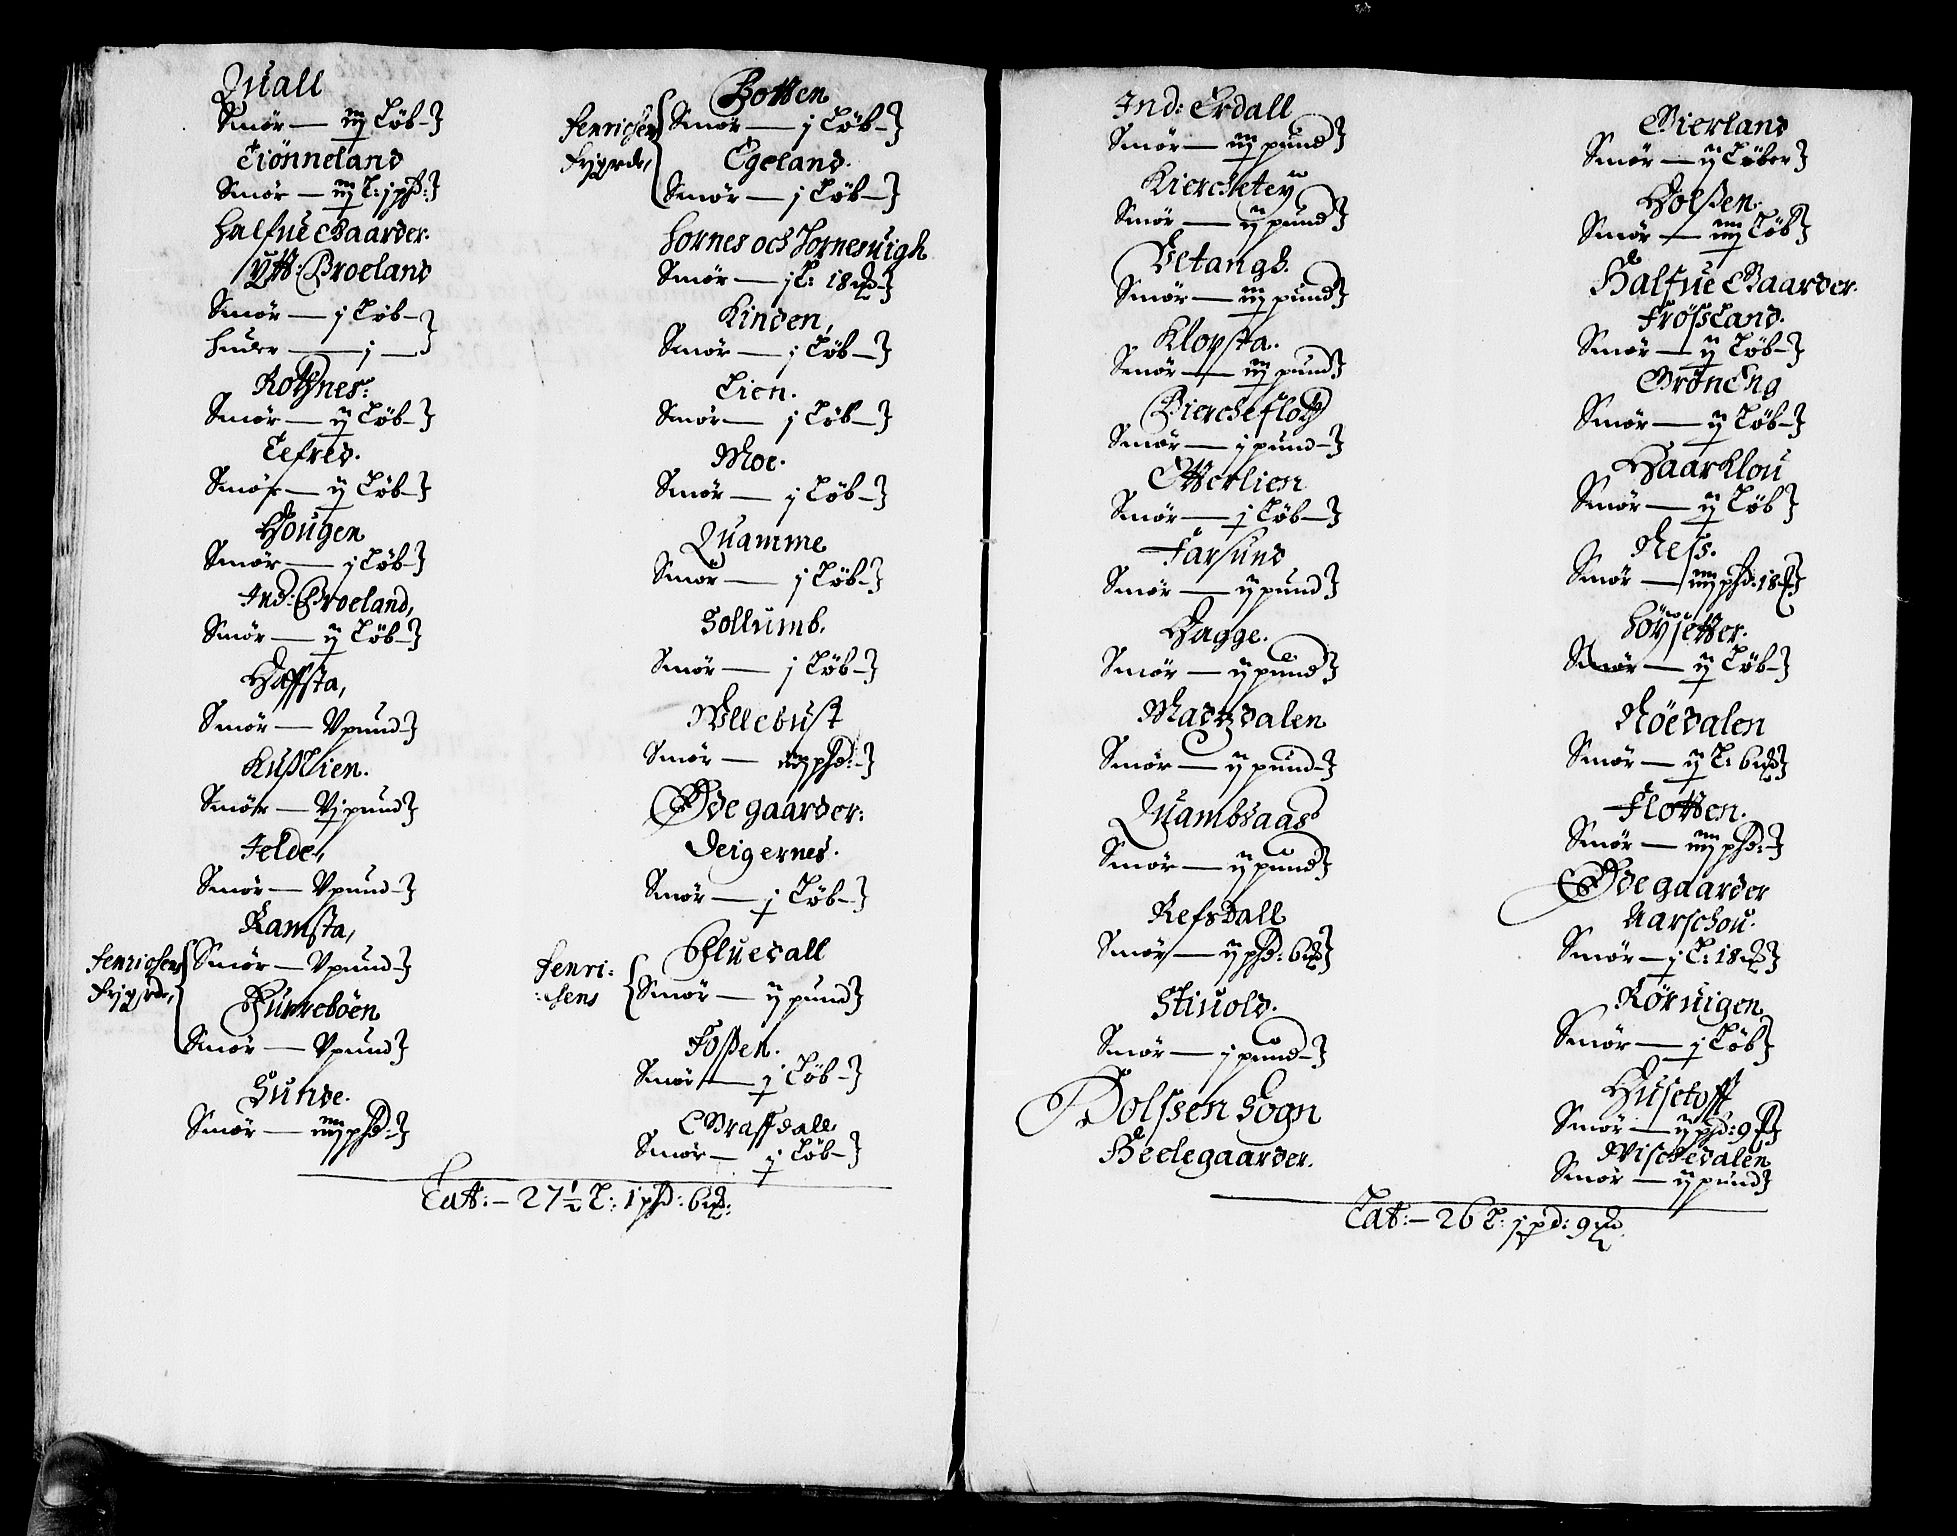 Quall
Smør — iij Løb —
Tiønneland
Smør — iij L: j pd:
Halfue Gaarder.
Ytt: Broeland
Smør — j Løb —
Huder — j —
Rotznes:
Smør — ij Løb —
Tefred.
Smør — ij Løb —
Hougen
Smør — j Løb —
Ind: Broeland,
Smør — ij Løb —
Haffsta,
Smør — V pund —
Kusslien.
Smør — Vj pund
Jelde,
Smør — V pund —
Ramsta,
Henrichsens
Smør — V pund —
Purreböen
Smør — V pund
Sunde.
Smør — iiij pd: —
Botten
Henrichsens
Smør — j Løb —
Egeland.
Smør — j Løb —
Hornes och Hornesuigh
Smør — j L: 18 ℔ —
Kinden,
Smør — j Løb —
Lien.
Smør — j Løb —
Moe.
Smør — j Løb —
Quamme
Smør — j Løb —
Sollumb.
Smør — j Løb —
Wllebust
Smør — iiij pd: —
Øde gaarder:
Deigernes.
Smør — j Løb —
Fluedall
Henri:
:chsens
Smør — ij pund
Fossen.
Smør — j Løb —
Graffdall
Smør — j Løb —
Lat: — 27½ L: 1 pd: 6 ℔:
Ind: Erdall
Smør — iij pund
Kierchetey
Smør — ij pund
Vetangh.
Smør — iij pund
Klopsta.
Smør — iij pund
Bierchefloth
Smør — j pund —
Etterlien
Smør — j Løb —
Farsund
Smør — ij pund
Hagge.
Smør — ij pund
Madtzdalen
Smør — ij pund —
Quambsaas
Smør — ij pund
Refsdall
Smør — ij pd: 6 ℔
Stiuold.
Smør — j pund —
Holssen Sogn
Heelegaarder.
Gierland
Smør — ij Løber
Holssen.
Smør — iiij Løb
Halfue Gaarder.
Frøssland.
Smør — ij Løb —
Grøneng
Smør — ij Løb —
Haarklou
Smør — ij Løb
Ness.
Smør — iiij pd: 18 ℔
Høysetter.
Smør — ij Løb —
Nöedalen
Smør — ij L: 6 ℔
Flotten.
Smør — iiij pd: —
Øde gaarder
Aarschou.
Smør — j L: 18 ℔
Rörnigen
Smør — j Løb
Husetofft
Smør — ij pd: 9 ℔
Wischedalen
Smør — ij pund
Lat: — 26 L: j pd: 9 ℔